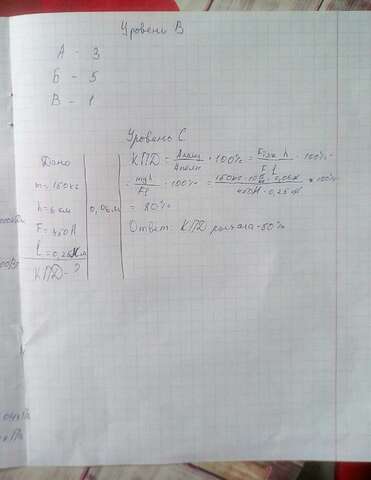 Уровень В
А - 3
Б - 5
В - 1
Уровень С
Дано
m = 150кг
h = 6 см 0,06 м
F = 450Н
l = 0,25 м
КПД - ?
КПД = Аполез/Аполн · 100% = Fтяж h/F l · 100% =
= mgh/Fl · 100% = 150кг · 10 · 0,06м/450Н · 0,25м · 100%
= 80%
Ответ: КПД рычага - 80%